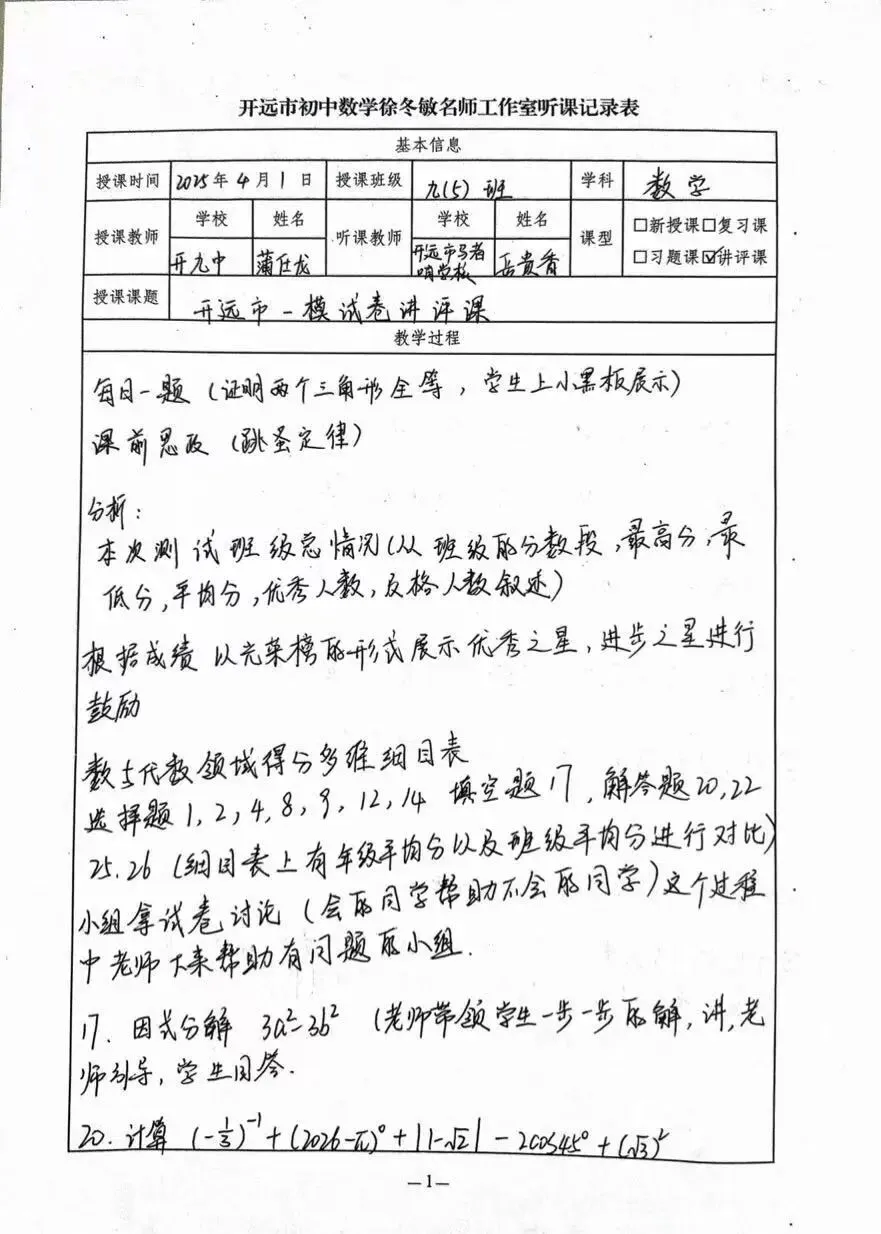 开远市初中数学徐冬敏名师工作室听课记录表
基本信息
授课时间 2025年4月1日 授课班级 九(5)班 学科 数学
授课教师 学校 姓名 听课教师 学校 姓名 课型 □新授课□复习课
开九中 蒲仕龙 开远市马者哨学校 岳贵香 □习题课☑讲评课
授课课题 开远市一模试卷讲评课
教学过程
每日一题（证明两个三角形全等，学生上小黑板展示）
课前思政（跳蚤定律）
分析：
本次测试班级总情况(从班级的分数段,最高分,最
低分,平均分,优秀人数,及格人数叙述）
根据成绩以光荣榜的形式展示优秀之星,进步之星进行
鼓励
数与代数领域得分多维细目表
选择题1,2,4,8,9,12,14 填空题17,解答题20,22
25.26（细目表上有年级平均分以及班级平均分进行对比）
小组拿试卷讨论（会的同学帮助不会的同学）这个过程
中老师下来帮助有问题的小组.
17.因式分解 3a²-3b²（老师带领学生一步一步的解,讲,老
师引导,学生回答.
20.计算 (-1/3)⁻¹+(2026-π)⁰+|1-√2|-2cos45°+(√3)²
—1—